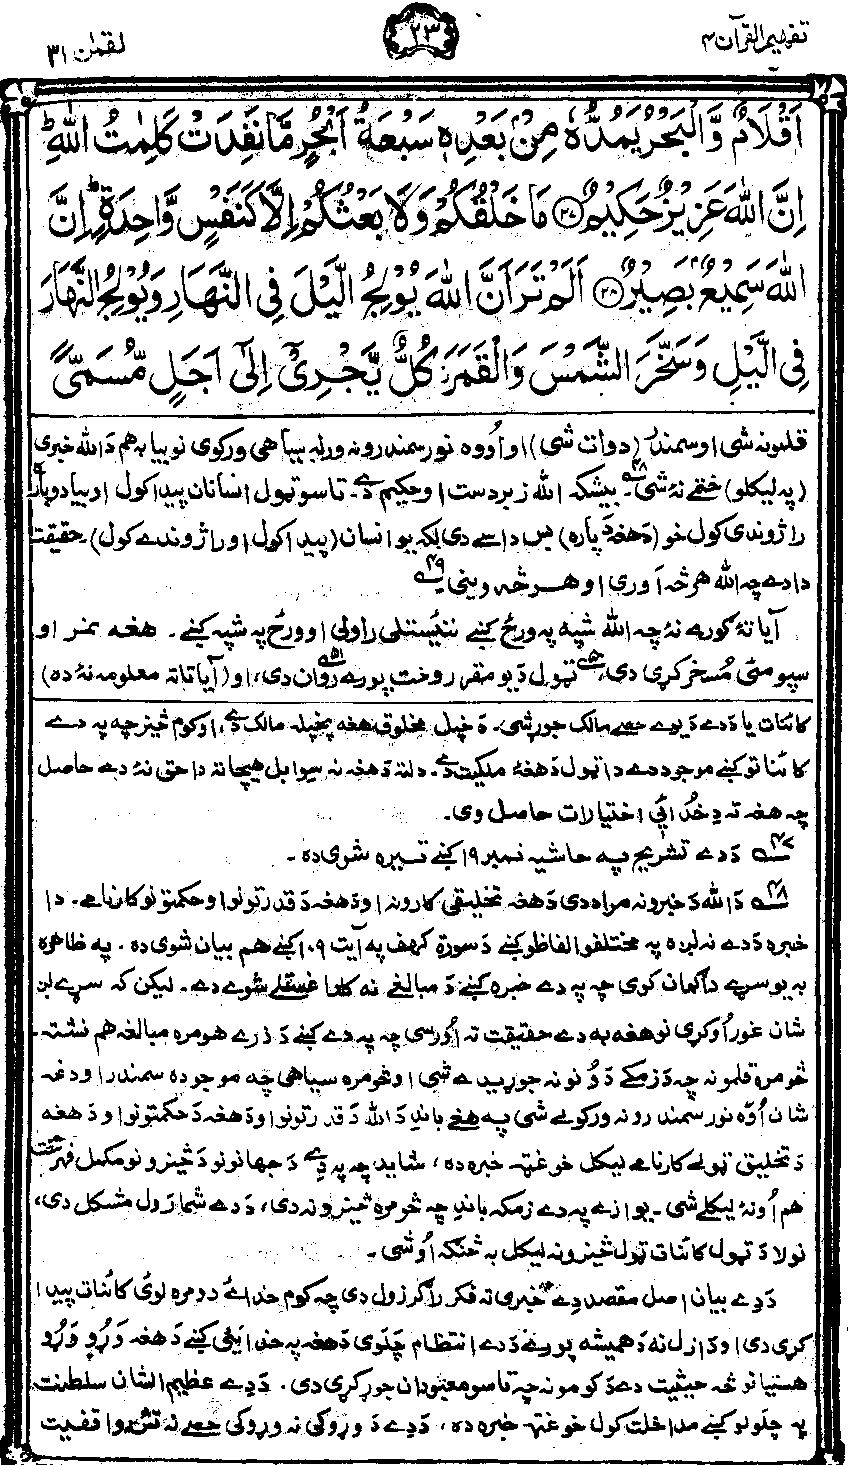 تفہیم القرآن ۴
۲۳
لقمٰن ۳۱
اَقْلَامٌ وَّالْبَحْرُ يَمُدُّهٗ مِنْۢ بَعْدِهٖ سَبْعَةُ اَبْحُرٍ مَّا نَفِدَتْ كَلِمٰتُ اللّٰهِ ؕ
اِنَّ اللّٰهَ عَزِيْزٌ حَكِيْمٌ ۝۲۷ مَا خَلْقُكُمْ وَلَا بَعْثُكُمْ اِلَّا كَنَفْسٍ وَّاحِدَةٍ ؕ اِنَّ
اللّٰهَ سَمِيْعٌۢ بَصِيْرٌ ۝۲۸ اَلَمْ تَرَ اَنَّ اللّٰهَ يُوْلِجُ الَّيْلَ فِي النَّهَارِ وَيُوْلِجُ النَّهَارَ
فِي الَّيْلِ وَسَخَّرَ الشَّمْسَ وَالْقَمَرَ كُلٌّ يَّجْرِيْٓ اِلٰٓى اَجَلٍ مُّسَمًّى
قلمونه شی او سمندر (دوات شی) او اُووه نور سمندرونه ورله سیاهی ورکوی نو بیا به هم دَ الله خبری
(په لیکلو) ختمے نۀ شی ۴۸۔ بیشکه الله زبردست او حکیم دے۔ تاسو ټهول انسانان پیدا کول او بیا دوباره
راژوندی کول خو (دَ هغۀ دَپاره) بس داسے دی لکه یو انسان (پیدا کول او راژوندے کول)، حقیقت
دا دے چه الله هر څه آوری او هر څه وینی ۴۹
آیا تۀ ګورے نۀ چه الله شپه په ورځ کښے ننیستلی راولی او ورځ په شپه کښے۔ هغه نمر او
سپوږمئ مُسخر کړی دی، ۵۰ ټهول دَ یو مقرر وخت پورے روان دی، ۵۱ او (آیا تاته معلومه نۀ ده)
کائنات یا دَدے دَ یوے حصے مالک جوړ شی۔ دَ خپل مخلوق هغه پخپله مالک دے، او کوم څیز چه په دے
کائناتو کښے موجود دے دا ټهول دَ هغۀ ملکیت دے۔ دلته دَ هغه نه سِوا بل هیچاته دا حق نۀ دے حاصل
چه هغه ته دِ خُدائی اختیارات حاصل وی۔
۴۷ دَدے تشریح په حاشیه نمبر ۱۹ کښے تیره شوی ده۔
۴۸ دَ الله دَ خبرو نه مراد دی دَ هغه تخلیقی کارونه او دَ هغه دَ قدرتونو او حکمتونو کارنامے۔ دا
خبره دَدے نه لږه په مختلفو الفاظو کښے دَ سورة کهف په آیت ۱۰۹ کښے هم بیان شوی ده۔ په ظاهره
به یو سړے دا ګمان کوی چه په دے خبره کښے دَ مبالغے نه کار اغستلے شوے دے۔ لیکن که سړے لږ
شان غور اوکړی نو هغه به دے حقیقت ته اُورسی چه په دے کښے دَ ذرے هومره مبالغه هم نشته۔
څومره قلمونه چه دَ زمکے دَ وُنو نه جوړیدے شی او څومره سیاهی چه موجوده سمندر او دغه
شان اُوه نور سمندرونه ورکولے شی په هغے باندِ دَ الله دَ قدرتونو او دَ هغه دَ حکمتونو او دَ هغه
دَ تخلیق ټهولے کارنامے لیکل خو غټه خبره ده، شاید چه په دِے دَ جهانونو دَ څیزونو مکمل فهرست
هم اُونۀ لیکلے شی۔ یوازے په دے زمکه باندِ چه څومره څیزونه دی، دَدے شمارَول مشکل دی،
نو لا دَ ټهول کائنات ټهول څیزونه لیکل به څنګه اُوشی۔
دَدِے بیان اصل مقصد دِے خبری ته فکر راګرزول دی چه کوم خدائے دومره لوئ کائنات پیدا
کړی دی او دَ ازل نه دَ همیشه پورے دَدے انتظام چلَوی دَ هغه په خدایئی کښے دَ هغه وَړو وَړو
هستیانو څه حیثیت دے دَ کومو نه چه تاسو معبودان جوړ کړی دی۔ دَدِے عظیم الشان سلطنت
په چلولو کښے مداخلت کول خو غټه خبره ده، دَدِے دَ وړوکی نه وړوکی حصے نه واقفیت